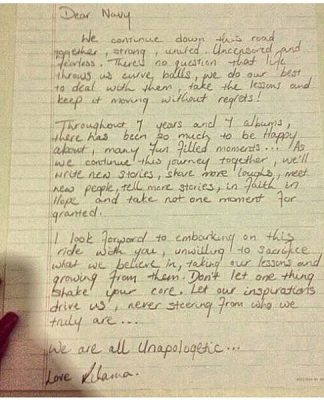 Dear Navy
We continue down this road
together, strong, united. Uncensored and
fearless. There's no question that life
throws us curve balls, we do our best
to deal with them, take the lessons and
keep it moving without regrets!
Throughout 7 years and 7 albums,
there has been so much to be happy
about, many fun filled moments... As
we continue this journey together, we'll
write new stories, share more laughs, meet
new people, tell more stories, in faith in
Hope and take not one moment for
granted.
I look forward to embarking on this
ride with you, unwilling to sacrifice
what we believe in, taking our lessons and
growing from them. Don't let one thing
shake your core. Let our inspirations
drive us, never steering from who we
truly are....
We are all Unapologetic...
Love Rihanna.